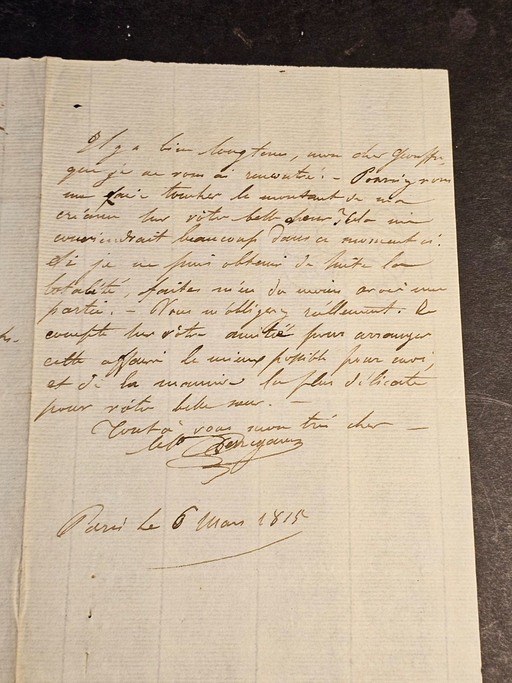 Il y a bien longtems, mon cher
que je ne vous ai rencontré. – Pourriez vous
me faire toucher le montant de ma
créance sur vôtre belle sœur? Cela me
conviendrait beaucoup dans ce moment ci.
Si je ne puis obtenir de suite la
totalité, faites m'en du moins avoir une
partie. – Vous m'obligerez réellement. Je
compte sur vôtre amitié pour arranger
cette affaire le mieux possible pour moi,
et de la manière la plus délicate
pour vôtre belle sœur. –
Tout à vous mon très cher –
Paris le 6 Mars 1815